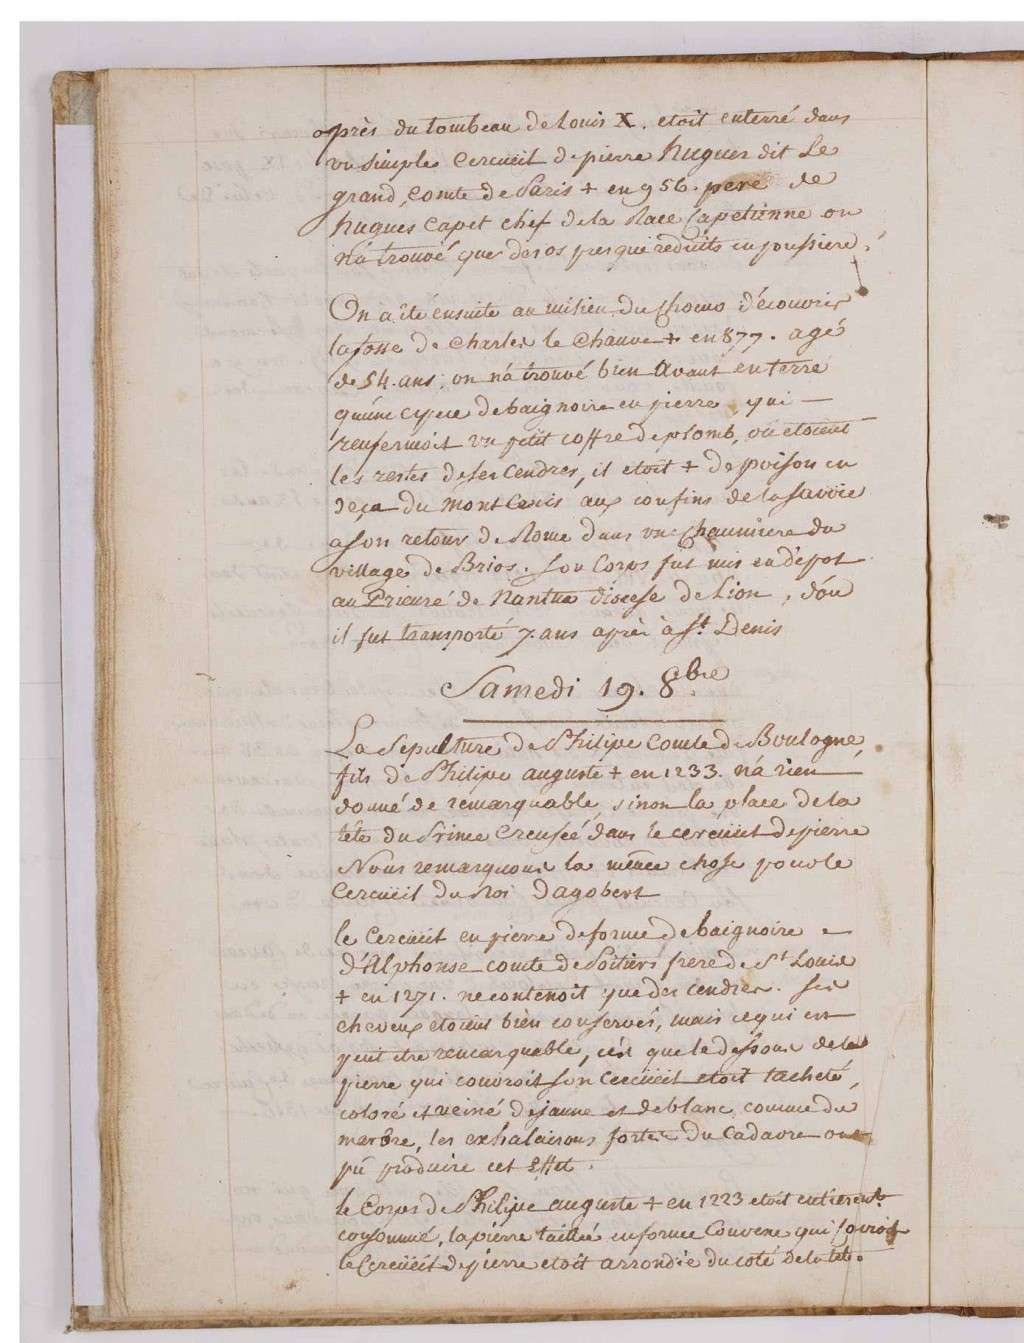 après du tombeau de Louis X. etoit enterré dans
un simple Cercueil de pierre hugues dit Le
grand, Comte de Paris + en 956. pere de
hugues Capet Chef de la Race Capetienne on
n'a trouvé que des os presque reduits en poussiere.
On a été ensuite au milieu du Choeur découvrir
la fosse de Charles le Chauve + en 877. agé
de 54. ans, on n'a trouvé bien avant en terre
qu'une espece de baignoire en pierre qui
renfermoit un petit coffre de plomb, où etoient
les restes de ses Cendres, il etoit + de poison en
deça du mont Cenis aux confins de la Savoie
a son retour de Rome dans une Chaumiere du
village de Brios. Son Corps fut mis en dépot
au Prieuré de Nantua diocese de Lion, d'où
il fut transporté 7. ans après à St. Denis
Samedi 19. 8bre
La Sépulture de Philipe Comte de Boulogne,
fils de Philipe auguste + en 1233. n'a rien
donné de remarquable, sinon la place de la
tête du Prince Creusée dans le cercueil de pierre
Nous remarquons la même chose pour le
Cercueil du Roi Dagobert
le Cercueil en pierre de forme de baignoire
d'Alphonse comte de Poitiers frere de St Louis
+ en 1271. ne contenoit que des cendres. Ses
cheveux etoient bien conservés, mais ce qui est
peut être remarquable, c'est que le dessous de la
pierre qui couvroit son Cercueil etoit tacheté,
coloré et veiné de jaune et de blanc comme du
marbre, les exhalaisons fortes du Cadavre ont
pû produire cet Effet.
le Corps de Philipe auguste + en 1223 etoit entieremt
consommé, la pierre taillée en forme Convexe qui couvroit
le Cercueil de pierre etoit arrondie du coté de la tête.